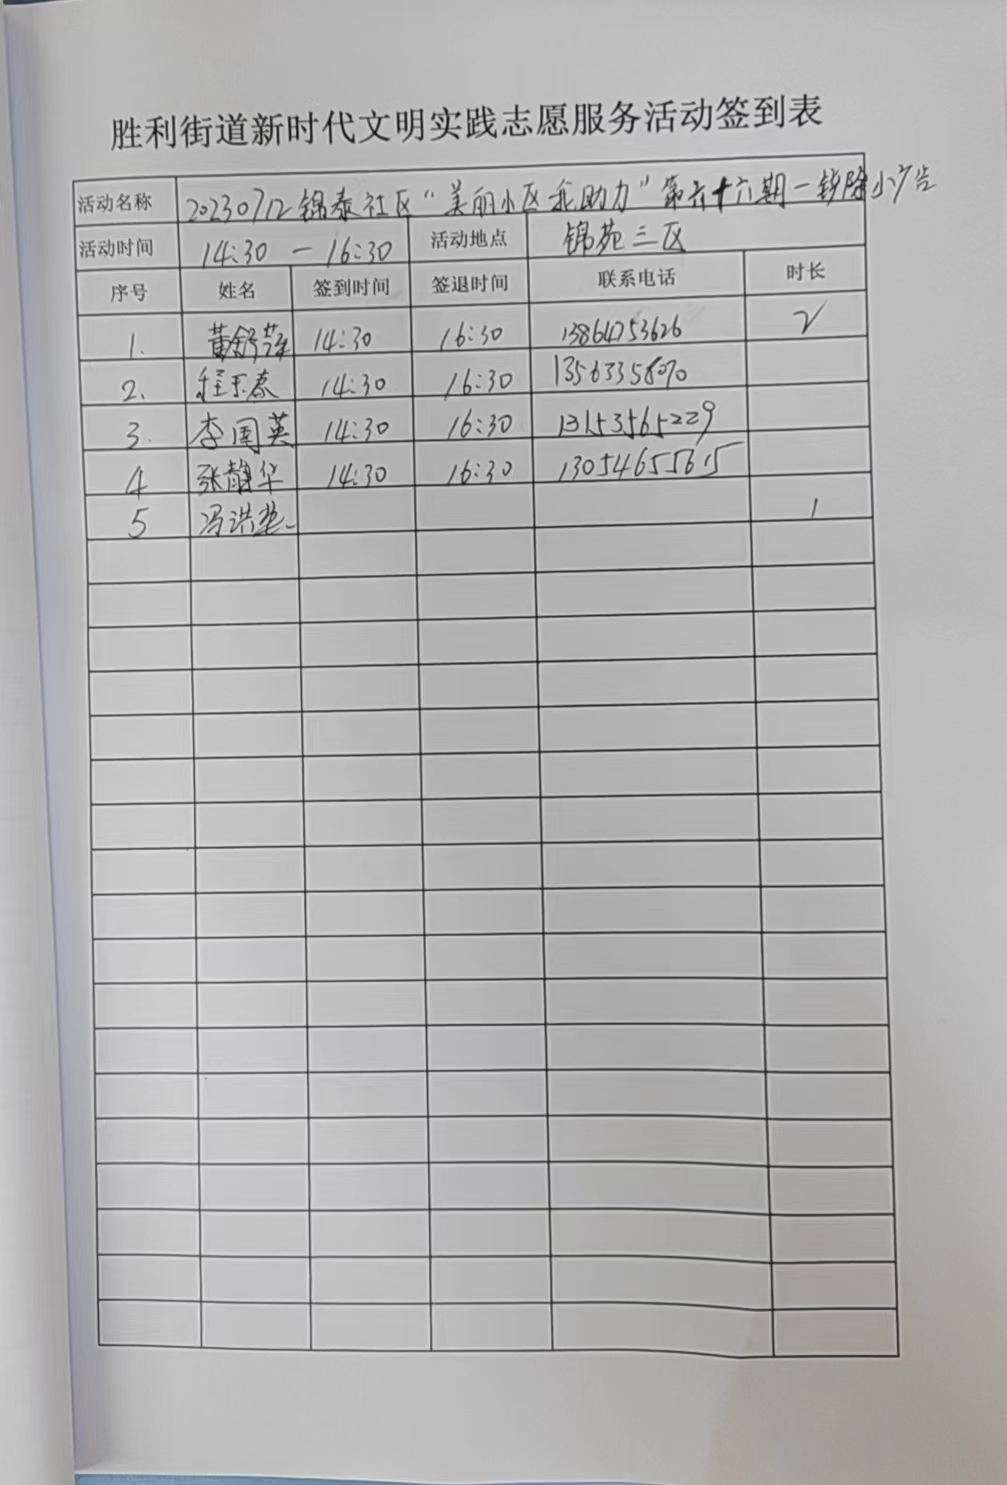 胜利街道新时代文明实践志愿服务活动签到表
活动名称 20230712锦泰社区“美丽小区我助力”第六十六期一铲除小广告
活动时间 14:30 — 16:30 活动地点 锦苑三区
序号 姓名 签到时间 签退时间 联系电话 时长
1. 黄舒萍 14:30 16:30 13864753626 2
2. 程玉泰 14:30 16:30 13563358070
3. 李国英 14:30 16:30 13153565229
4 张静华 14:30 16:30 13054655615
5 冯洪 1